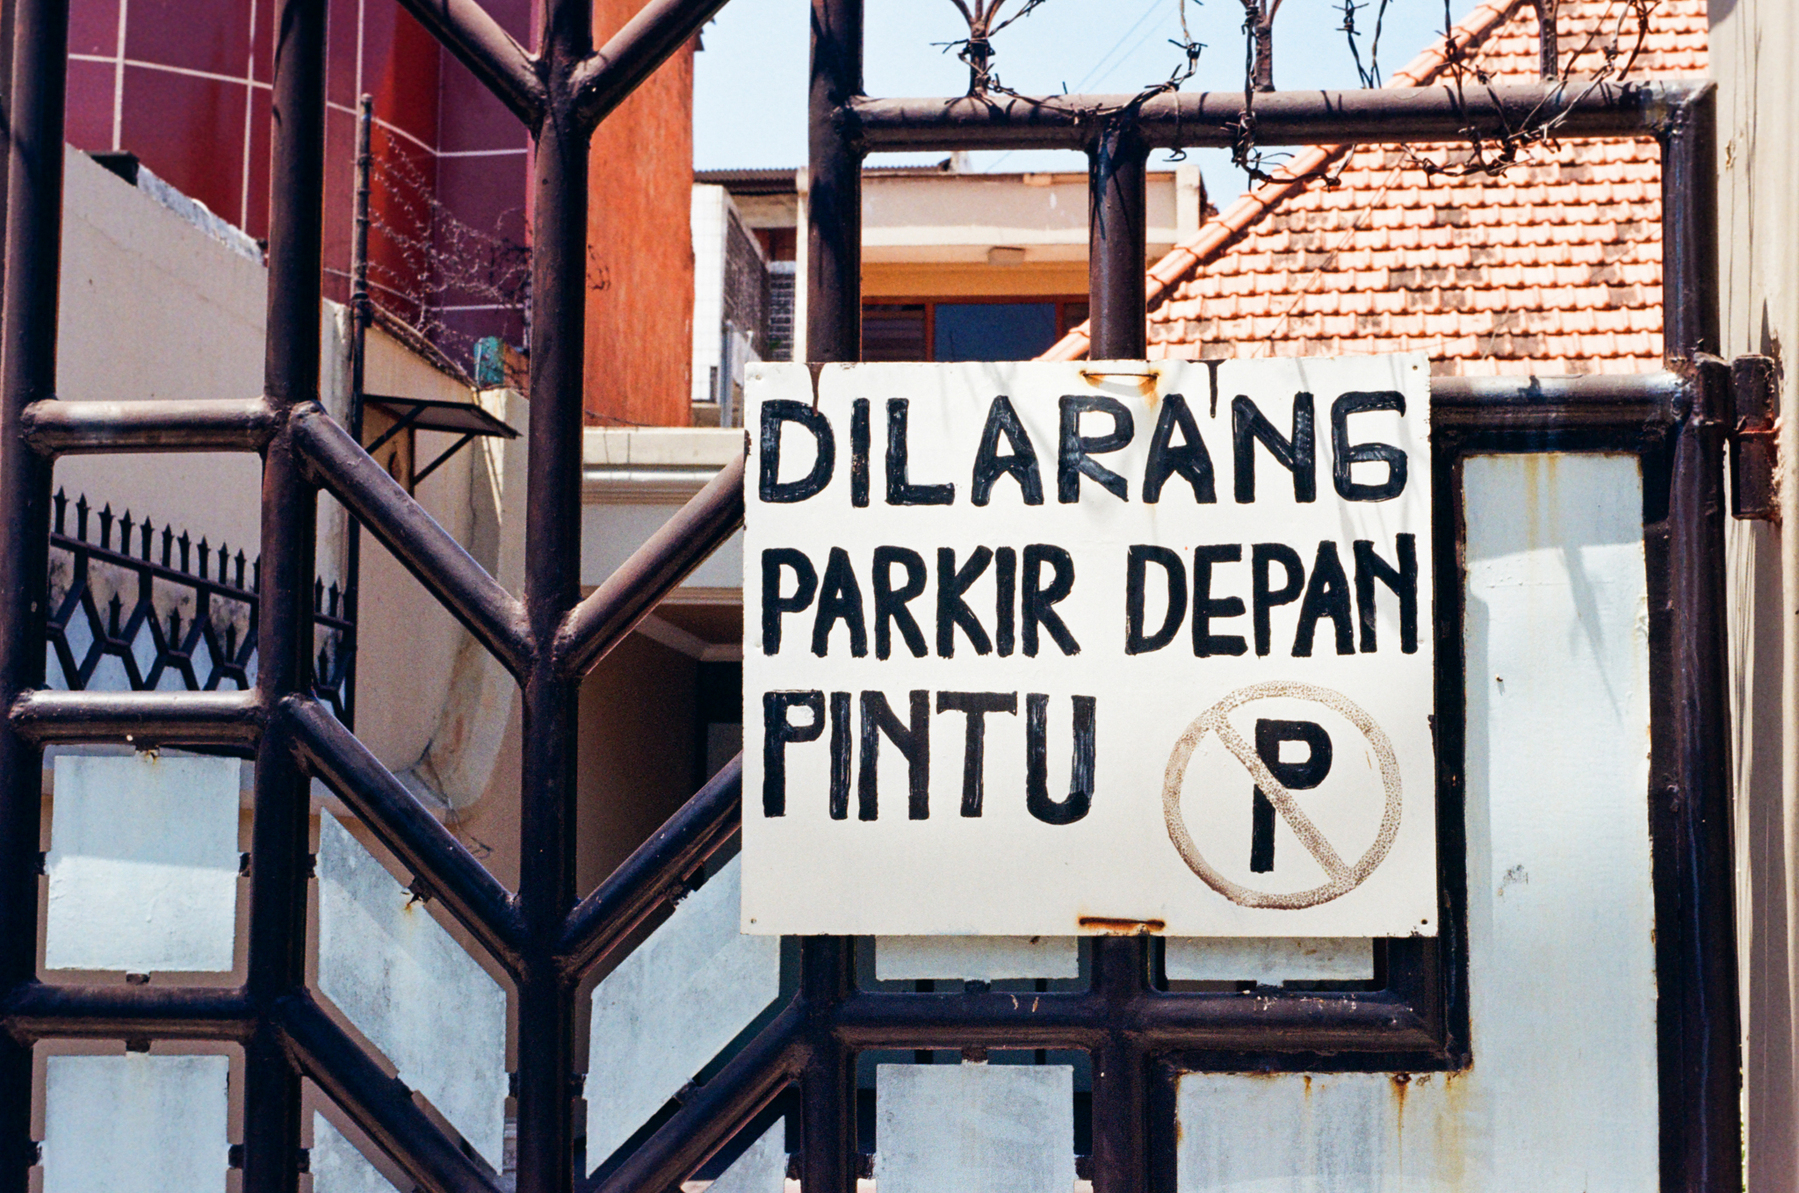 DILARANG
PARKIR DEPAN
PINTU
P